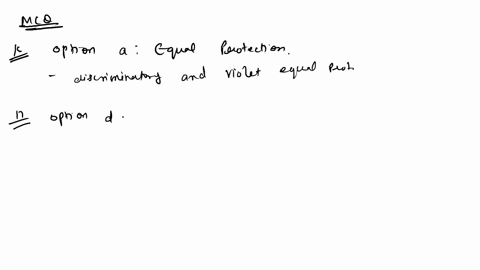 MCQ
K option a: Equal Protection.
- discriminatory and violet equal prot
n option d.